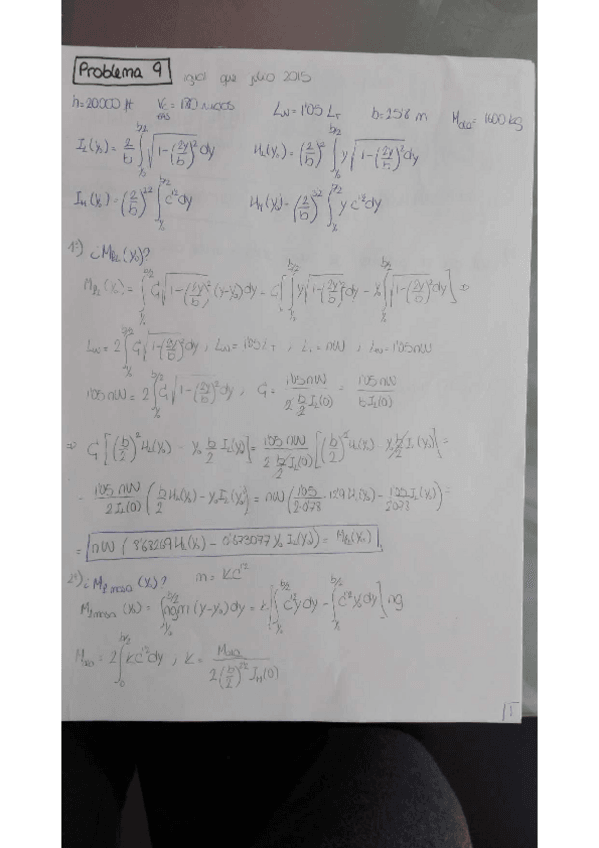 Problema 9 igual que julio 2015
h=20000 ft Vc EAS = 180 nudos Lw = 1'05 LT b = 25'8 m Mala = 1600 kg
IL(y0) = 2/b ∫_{y0}^{b/2} √(1-(2y/b)²) dy HL(y0) = (2/b)² ∫_{y0}^{b/2} y √(1-(2y/b)²) dy
In(y0) = (2/b)^2'2 ∫_{y0}^{b/2} c^1'2 dy Hn(y0) = (2/b)^3'2 ∫_{y0}^{b/2} y c^1'2 dy
1º) ¿MfL(y0)?
MfL(y0) = ∫_{y0}^{b/2} G √(1-(2y/b)²) (y-y0) dy = G [ ∫_{y0}^{b/2} y √(1-(2y/b)²) dy - y0 ∫_{y0}^{b/2} √(1-(2y/b)²) dy ] ⇒
Lw = 2 ∫_{0}^{b/2} G √(1-(2y/b)²) dy , Lw = 1'05 LT , LT = nW , Lw = 1'05 nW
1'05 nW = 2 ∫_{0}^{b/2} G √(1-(2y/b)²) dy , G = 1'05 nW / (2 b/2 IL(0)) = 1'05 nW / (b IL(0))
⇒ G [ (b/2)² HL(y0) - y0 b/2 IL(y0) ] = 1'05 nW / (2 b/2 IL(0)) [ (b/2)² HL(y0) - y0 b/2 IL(y0) ] =
= 1'05 nW / (2 IL(0)) ( b/2 HL(y0) - y0 IL(y0) ) = nW ( 1'05 / (2·0'78) · 12'9 HL(y0) - 1'05 / (2·0'78) IL(y0) ) =
= nW ( 8'68269 HL(y0) - 0'673077 y0 IL(y0) ) = MfL(y0)
2º) ¿Mf masa (y0)? m = Kc^1'2
Mf masa (y0) = ∫_{y0}^{b/2} ngm (y-y0) dy = K [ ∫_{y0}^{b/2} c^1'2 y dy - ∫_{y0}^{b/2} c^1'2 y0 dy ] ng
Mala = 2 ∫_{0}^{b/2} Kc^1'2 dy , K = Mala / (2 (b/2)^2'2 In(0))
1